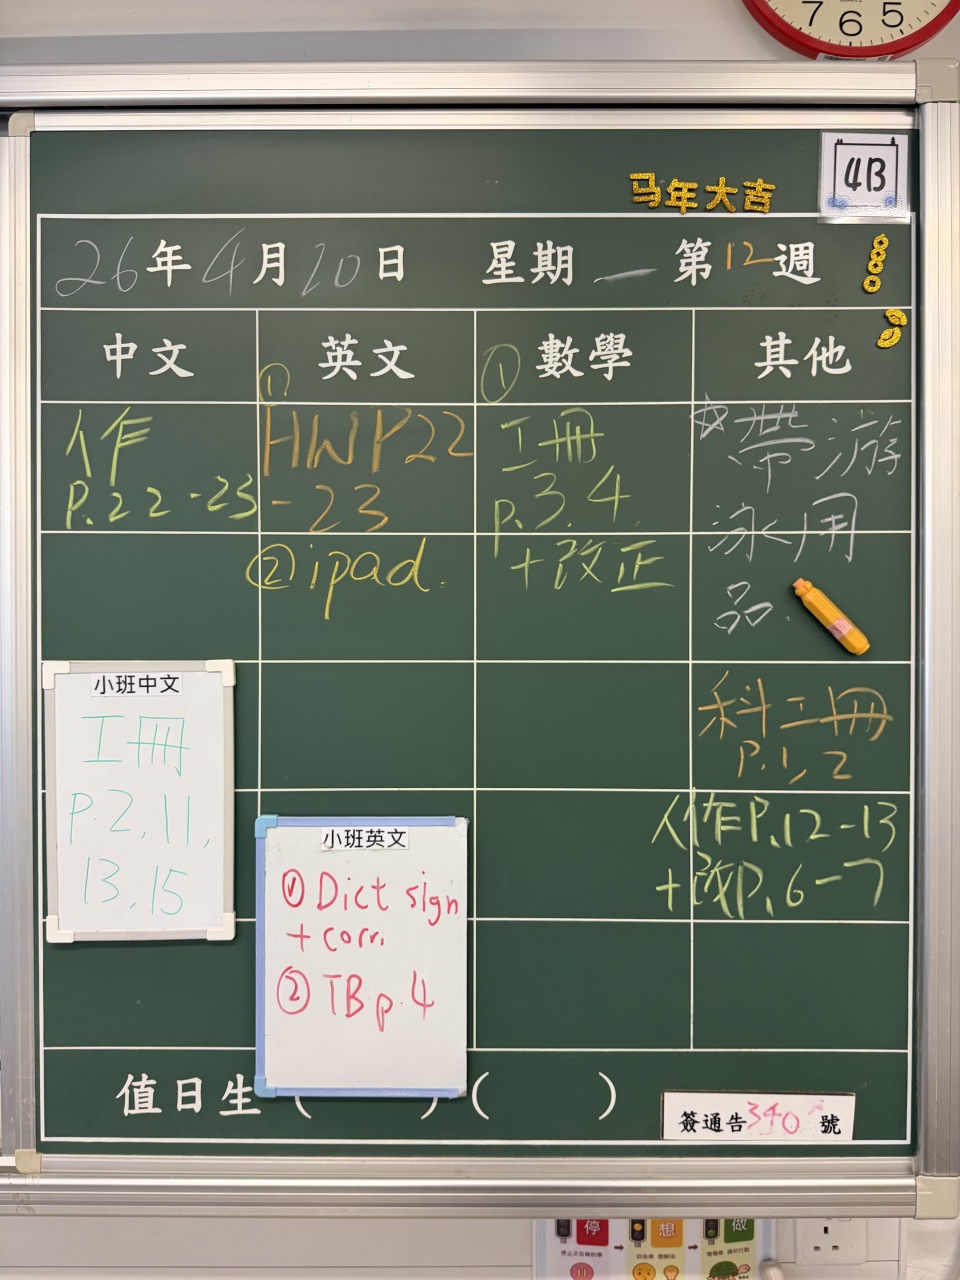 7 6 5
4B
马年大吉
26年4月20日 星期一 第12週
中文 英文 數學 其他
人作
P.22-23
①
HWP22
-23
②ipad.
①
工冊
p.3.4
+改正
☆帶游
泳用
品.
科工冊
P.1,2
人作P.12-13
+改P.6-7
小班中文
工冊
P.2,11,
13,15
小班英文
① Dict sign
+ corr.
② TB p.4
值日生 ( ) ( )
簽通告340號
停 想 做